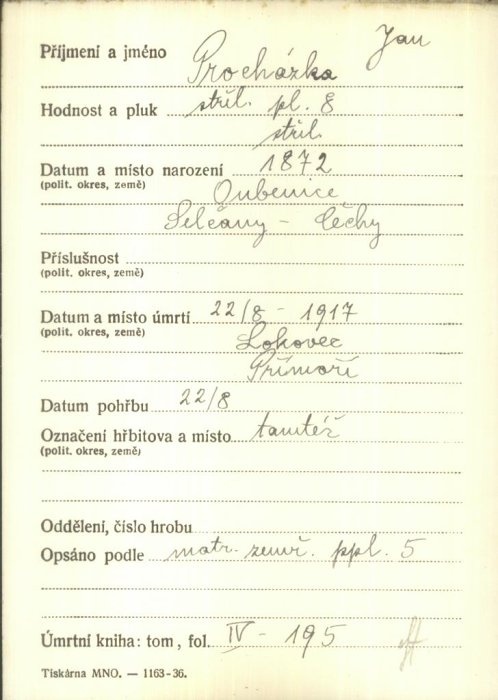 Jan
Příjmení a jméno Procházka
Hodnost a pluk střl. pl. 8
střl.
Datum a místo narození 1872
(polit. okres, země) Oubenice
Selčany - Čechy
Příslušnost
(polit. okres, země)
Datum a místo úmrtí 22/8 - 1917
(polit. okres, země) Lokovec
Přímoří
Datum pohřbu 22/8
Označení hřbitova a místo tamtéž
(polit. okres, země)
Oddělení, číslo hrobu
Opsáno podle matr. zemř. ppl. 5
Úmrtní kniha: tom, fol. IV - 195
Tiskárna MNO. — 1163-36.